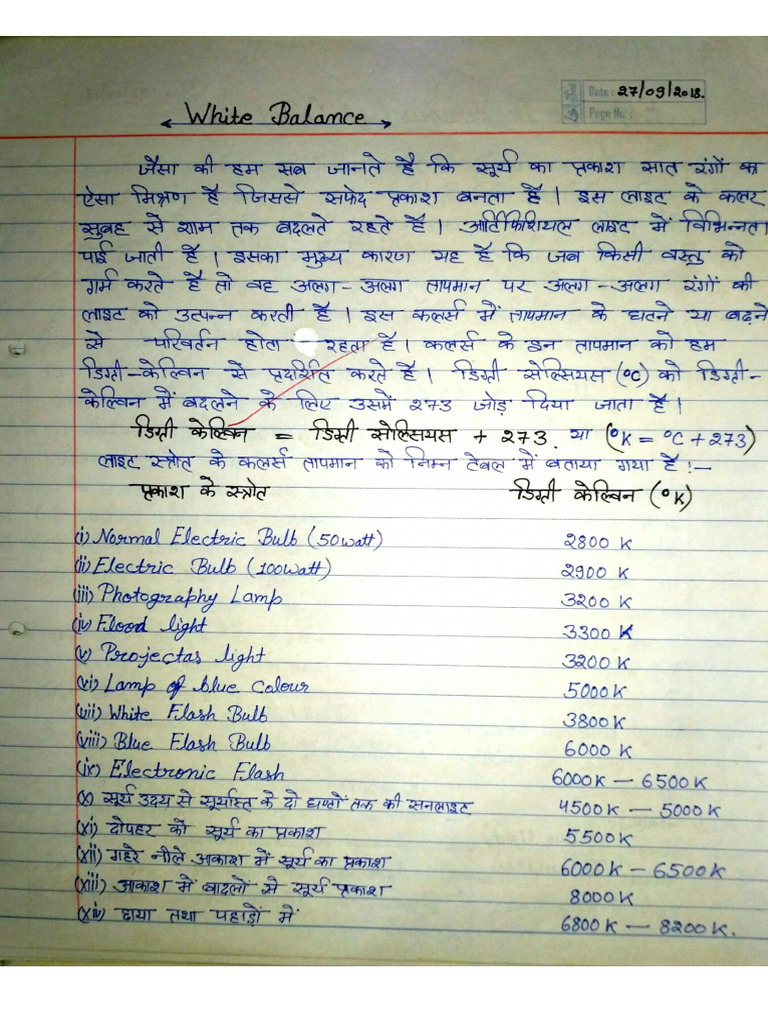 Date: 27/09/2018.
Page No.:
White Balance
जैसा की हम सब जानते है कि सूर्य का प्रकाश सात रंगों का
ऐसा मिश्रण है जिससे सफेद प्रकाश बनता है। इस लाइट के कलर
सुबह से शाम तक बदलते रहते है। आर्टिफिशियल लाइट में विभिन्नता
पाई जाती है। इसका मुख्य कारण यह है कि जब किसी वस्तु को
गर्म करते है तो वह अलग-अलग तापमान पर अलग-अलग रंगों की
लाइट को उत्पन्न करती है। इस कलर्स में तापमान के घटने या बढ़ने
से परिवर्तन होता रहता है। कलर्स के इन तापमान को हम
डिग्री-केल्विन से प्रदर्शित करते है। डिग्री सेल्सियस (°C) को डिग्री-
केल्विन में बदलने के लिए उसमें 273 जोड़ दिया जाता है।
डिग्री केल्विन = डिग्री सेल्सियस + 273. या (°K = °C + 273)
लाइट स्त्रोत के कलर्स तापमान को निम्न टेबल में बताया गया है :-
प्रकाश के स्त्रोत डिग्री केल्विन (°K)
(i) Normal Electric Bulb (50watt) 2800 K
(ii) Electric Bulb (100watt) 2900 K
(iii) Photography Lamp 3200 K
(iv) Flood light 3300 K
(v) Projectas light 3200 K
(vi) Lamp of blue Colour 5000 K
(vii) White Flash Bulb 3800 K
(viii) Blue Flash Bulb 6000 K
(ix) Electronic Flash 6000K – 6500K
(x) सूर्य उदय से सूर्यास्त के दो घण्टों तक की सनलाइट 4500K – 5000K
(xi) दोपहर को सूर्य का प्रकाश 5500K
(xii) गहरे नीले आकाश में सूर्य का प्रकाश 6000K – 6500K
(xiii) आकाश में बादलों से सूर्य प्रकाश 8000K
(xiv) छाया तथा पहाड़ों में 6800K – 8200K.